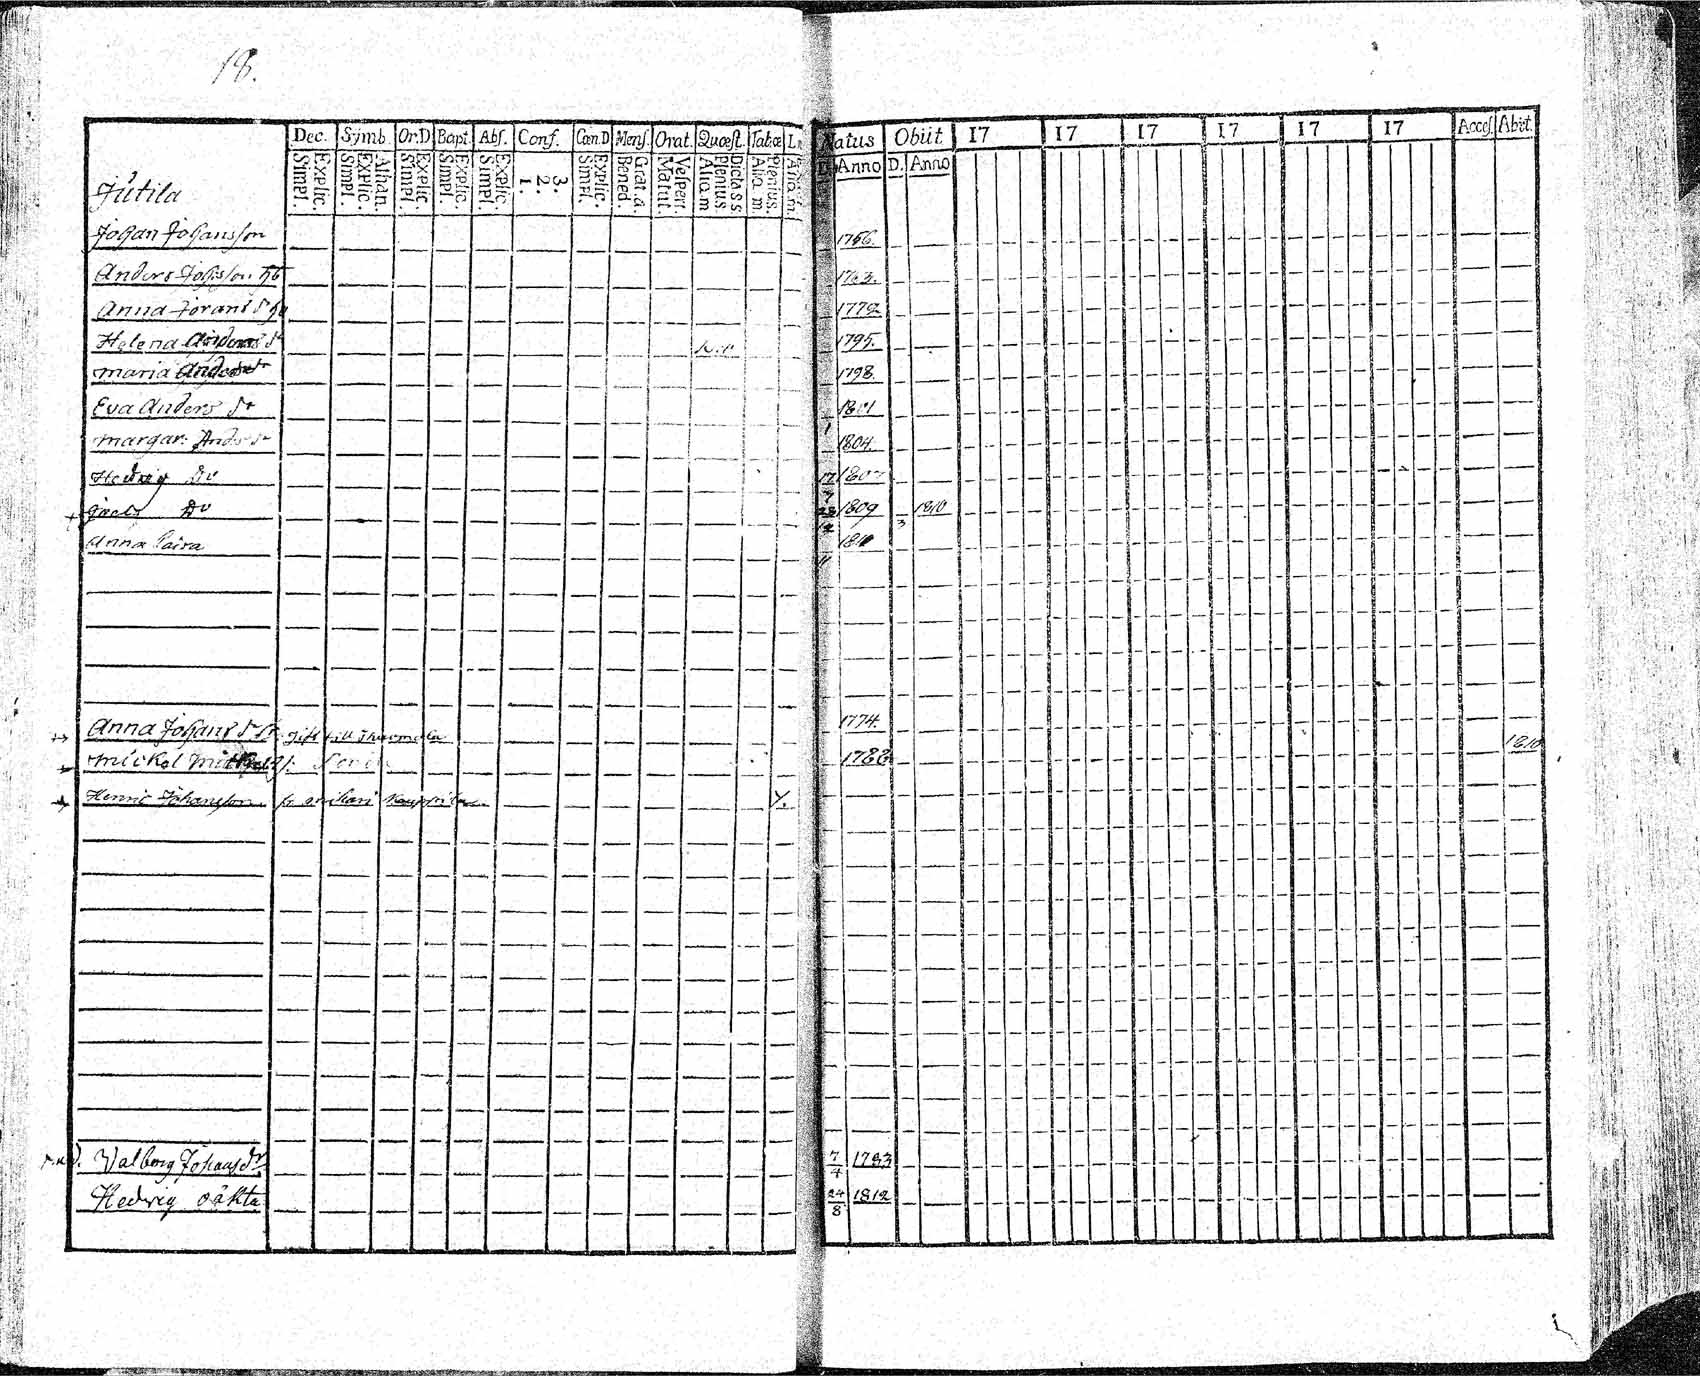 18.
Dec. Symb. Or.D Bapt. Abs. Conf. Cœn.D Mens. Orat. Quæst. Tabæ Natus Obiit 17 17 17 17 17 17 Access. Abiit.
Explic. Simpl. Athan. Explic. Simpl. Explic. Simpl. Explic. Simpl. Explic. Simpl. 3. 2. 1. Explic. Simpl. Grat. a. Bened. Vespert. Matut. Dicta S S Plenius. Alia m Plenius. Alia m D. Anno D. Anno
Jutila
Johan Johansson 1756.
Anders Johsson 1763.
Anna Jörans dr 1772
Helena Anders dr 1795.
Maria Anders dr 1798.
Eva Anders dr 1801
Margar: Anders dr 1 1804.
Hedvig Do 17 180
+ Do 1809 3 1810
Anna Caisa 11
Anna Johans dr gift till 1774.
Mickel 1810
Henric Johansson fr V.
Valborg Johans dr 7/4 1783
Hedvig oäkta 24/8 1812